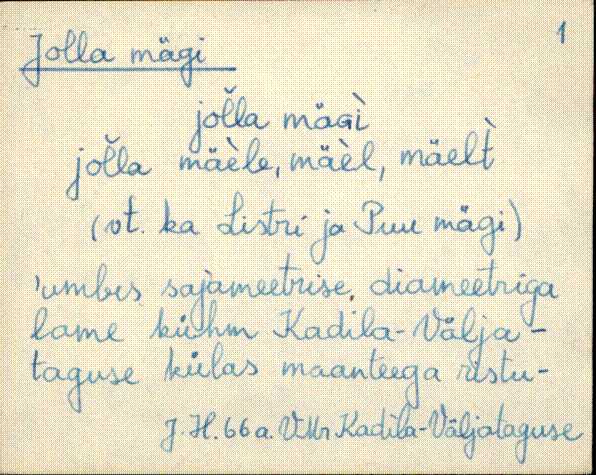 1
Jolla mägi
jol̆la mäGì
jol̆la mäèle, mäèl, mäelt̀
(vt. ka Listri ja Puu mägi)
'umbes sajameetrise diameetriga
lame kühm Kadila-Välja-
taguse külas maanteega ristu-
J. H. 66 a. VMr Kadila-Väljataguse